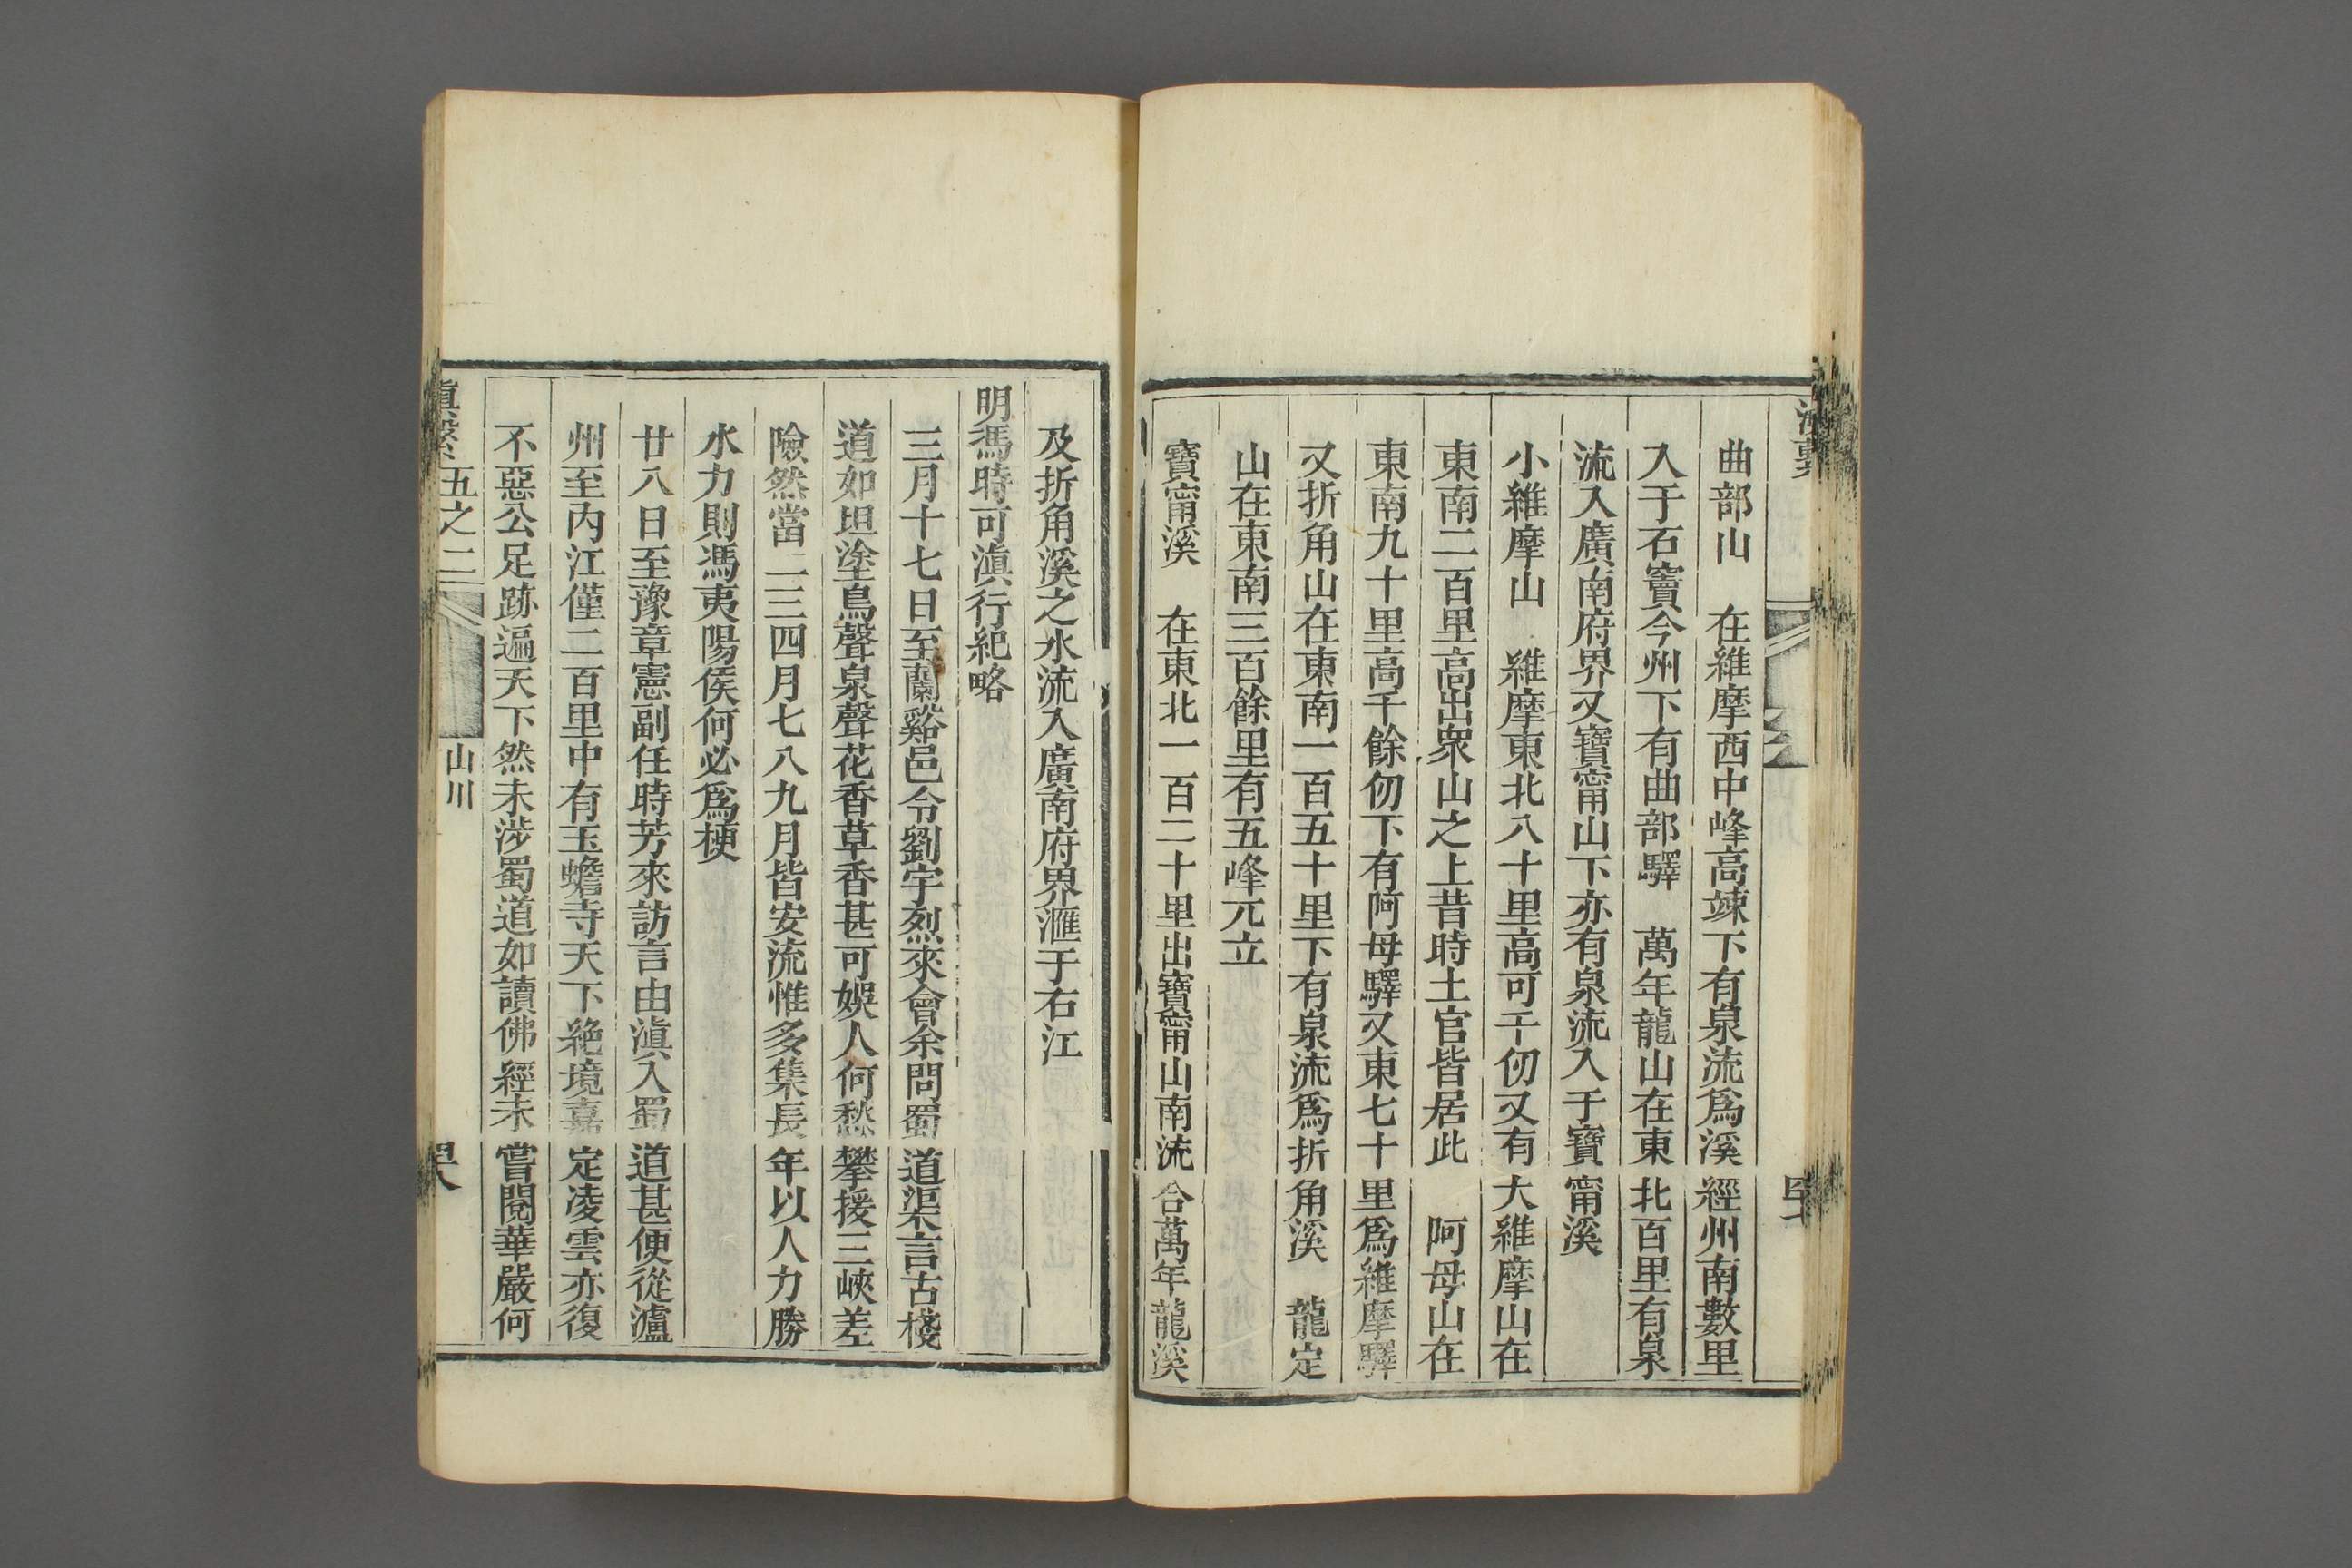 曲部山　在維摩西中峰高竦下有泉流爲溪經州南數里
入于石竇今州下有曲部驛　萬年龍山在東北百里有泉
流入廣南府界又寶甯山下亦有泉流入于寶甯溪
小維摩山　維摩東北八十里高可千仞又有大維摩山在
東南二百里高出衆山之上昔時土官皆居此　阿母山在
東南九十里高千餘仞下有阿母驛又東七十里爲維摩驛
又折角山在東南一百五十里下有泉流爲折角溪　龍定
山在東南三百餘里有五峰兀立
寶甯溪　在東北一百二十里出寶甯山南流合萬年龍溪
及折角溪之水流入廣南府界滙于右江
明馮時可滇行紀略
三月十七日至蘭谿邑令劉宇烈來會余問蜀道渠言古棧
道如坦塗鳥聲泉聲花香草香甚可娛人何愁攀援三峽差
險然當二三四月七八九月皆安流惟多集長年以人力勝
水力則馮夷陽侯何必爲梗
廿八日至豫章憲副任時芳來訪言由滇入蜀道甚便從瀘
州至內江僅二百里中有玉蟾寺天下絶境嘉定凌雲亦復
不惡公足跡遍天下然未涉蜀道如讀佛經未嘗閱華嚴何
滇繫 五之二 山川